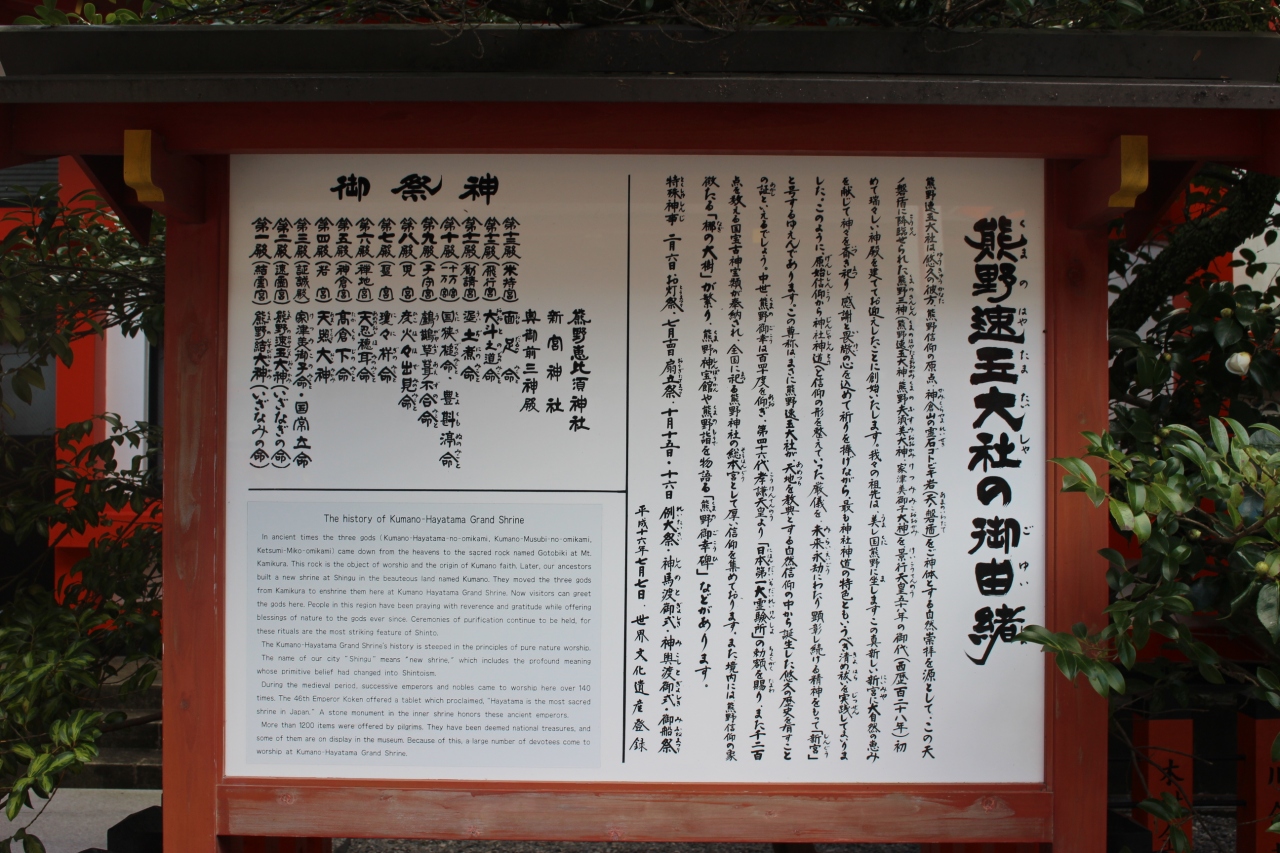 熊野速玉大社の御由緒
熊野速玉大社は悠久の彼方、熊野信仰の原点、神倉山の霊石ゴトビキ岩(天磐盾)をご神体とする自然崇拝を源として、この天
ノ磐盾に降臨せられた熊野三神(熊野速玉大神 熊野夫須美大神 家津美御子大神)を景行天皇五十八年の御代(西暦百二十八年)初
めて瑞々しい神殿を建ててお迎えしたことに創始いたします。我々の祖先は、美し国熊野に坐しますこの真新しい新宮に大自然の恵み
を献じて神々を斎き祀り、感謝と畏敬の心を込めて祈りを捧げながら、最も神社神道の特色ともいうべき清め祓を実践してまいりま
した。このように原始信仰から神社神道へと信仰の形を整えていった厳儀を、未来永劫にわたり顕彰し続ける精神をもって「新宮」
と号するゆえんであります。この尊称はまさに熊野速玉大社が、天地を教典とする自然信仰の中から誕生した悠久の歴史を有すこと
の証といえるでしょう。中世熊野御幸は百四十度を仰ぎ、第四十六代孝謙天皇より「日本第一大霊験所」の勅額を賜り、また千二百
点を数える国宝古神宝類が奉納され、全国に祀る熊野神社の総本宮として厚い信仰を集めております。また境内には熊野信仰の象
徴たる「梛の大樹」が繁り、熊野神宝館や熊野詣を物語る「熊野御幸碑」などがあります。
特殊神事 二月六日お灯祭、七月十四日扇立祭・十月十五日・十六日 例大祭・神馬渡御式・神輿渡御式・御船祭
平成十六年七月七日、世界文化遺産登録
御祭神
第一殿(結霊宮)熊野結大神(いざなみの命)
第二殿(速霊宮)熊野速玉大神(いざなぎの命)
第三殿(証誠殿)家津美御子命・国常立命
第四殿(若宮)天照大神
第五殿(神倉宮)高倉下命
第六殿(禅地宮)天忍穂耳命
第七殿(聖宮)瓊々杵命
第八殿(児宮)彦火々出見命
第九殿(子守宮)鸕鶿草葺不合命
第十殿(一万宮)国狭槌命・豊斟渟命
第十一殿(勧請宮)泥土煮命
第十二殿(飛行宮)大斗之道命
第十三殿(米持宮)面足命
奥御前三神殿
新宮神社
熊野恵比須神社
The history of Kumano-Hayatama Grand Shrine
In ancient times the three gods (Kumano-Hayatama-no-omikami, Kumano-Musubi-no-omikami,
Ketsumi-Miko-omikami) came down from the heavens to the sacred rock named Gotobiki at Mt.
Kamikura. This rock is the object of worship and the origin of Kumano faith. Later, our ancestors
built a new shrine at Shingu in the beauteous land named Kumano. They moved the three gods
from Kamikura to enshrine them here at Kumano Hayatama Grand Shrine. Now visitors can greet
the gods here. People in this region have been praying with reverence and gratitude while offering
blessings of nature to the gods ever since. Ceremonies of purification continue to be held, for
these rituals are the most striking feature of Shinto.
The Kumano-Hayatama Grand Shrine's history is steeped in the principles of pure nature worship.
The name of our city "Shingu" means "new shrine," which includes the profound meaning
whose primitive belief had changed into Shintoism.
During the medieval period, successive emperors and nobles came to worship here over 140
times. The 46th Emperor Koken offered a tablet which proclaimed, "Hayatama is the most sacred
shrine in Japan." A stone monument in the inner shrine honors these ancient emperors.
More than 1200 items were offered by pilgrims. They have been deemed national treasures, and
some of them are on display in the museum. Because of this, a large number of devotees come to
worship at Kumano-Hayatama Grand Shrine.